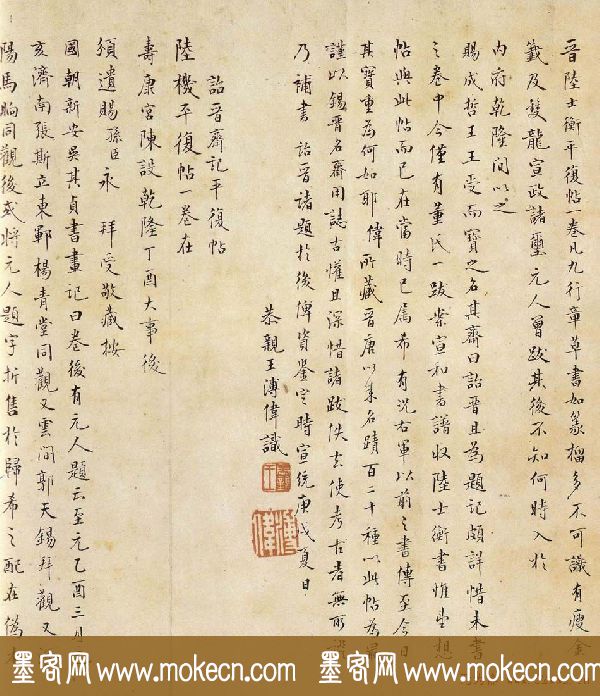 晋陸士衡平復帖一卷凡九行章草書如篆榴多不可識有瘦金
籤及雙龍宣政諸璽元人曾跋其後不知何時入於
内府乾隆間以之
賜成哲王王受而寶之名其齋曰詒晉且為題記頗詳惜未書
之卷中今僅有董氏一跋案宣和書譜收陸士衡書惟
帖與此帖而已在當時已属希有況右軍以前之書傳至今日
其寶重為何如耶偉所藏晉唐以来名蹟百二十種以此帖為
謹以錫晋名齋用誌古懽且深惜諸跋佚去使考古者無所
乃補書詒晉諸題於後俾資鑒定時宣统庚戌夏日
恭親王溥偉識
詒晉齋記平復帖
陸機平復帖一卷在
壽康宫陳設乾隆丁酉大事後
頒遺賜孫臣永拜受敬藏按
國朝新安吳其貞書畫記曰卷後有元人題云至元乙酉三月
亥濟南張斯立東鄆楊青堂同觀又雲間郭天錫拜觀又
陽馬昫同觀後或將元人題字折售於歸希之配在偽
墨客网 www.mokecn.com 墨客网 www.mokecn.com